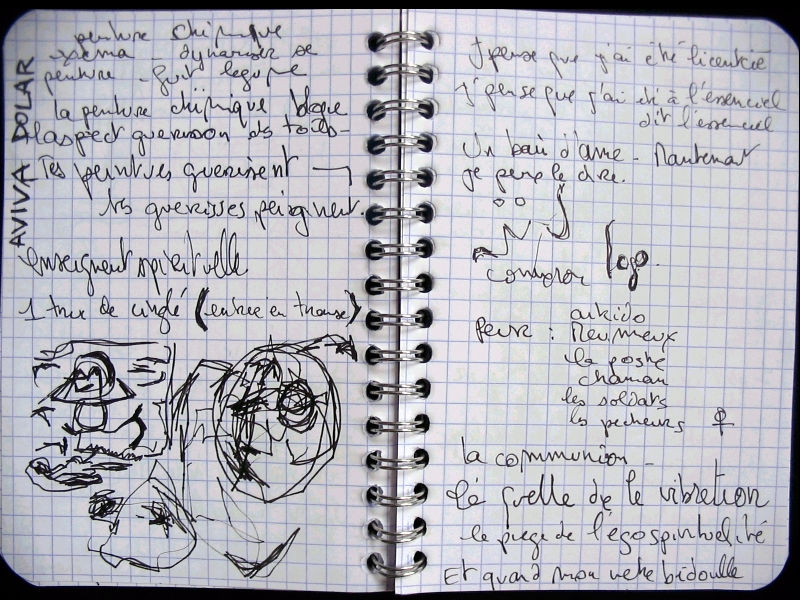 AVIVA DOLAR
peinture chimique
dynamiser se
peinture - fruit legume
la peinture chimique bloque
l'aspect guerison des toiles -
Tes peintures guerissent
tes guerisses peignent.
enseignent spirituelle
1 truc de cinglé (entree en transe)
J pense que j'ai été licentié
J'pense que j'ai été à l'essenciel
dit l'essenciel
Un bain d'ame - Maintenant
je peux le dire.
logo.
peur :
aikido
la poste
chaman
les soldats
les pecheurs
la communion -
quelle de le vibration
le piege de l'égospiritualité
Et quand mon ventre bidouille